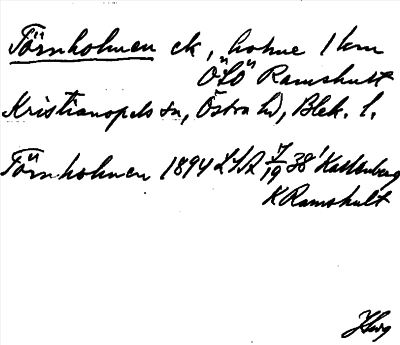 Törnholmen ek, holme 1 km
ÖSÖ Ramshult
Kristianopels sn, Östra hd, Blek. l.
Törnholmen 1894 LSA 7/19 38' Kallenberg
K Ramshult